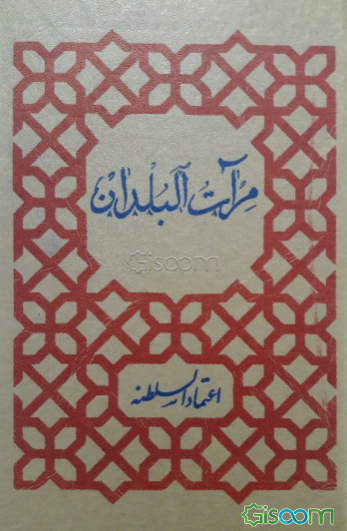 مِرآتُ البُلدان
Gisoom
اعتماد السلطنه
Gisoom
.com